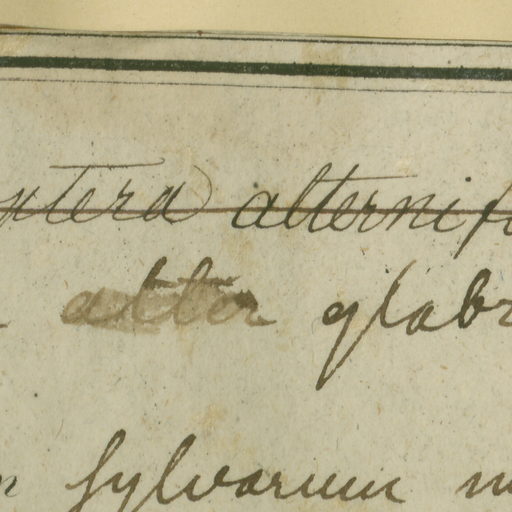 ptera alternif
alter glabr
sylvarum